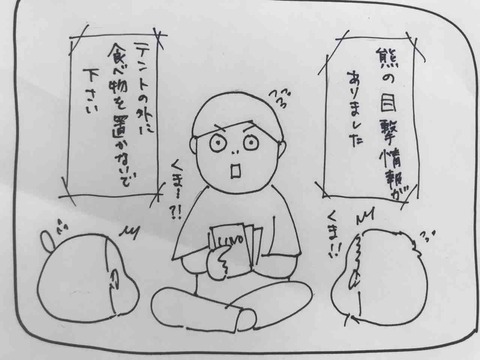 熊の目撃情報が
ありました
テントの外に
食べ物を置かないで
下さい
くまー?!
くま!!
UNO